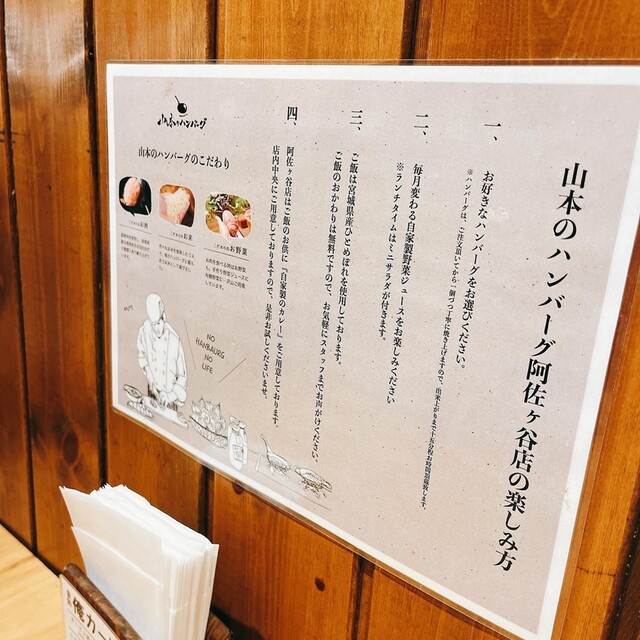 山本のハンバーグ阿佐ヶ谷店の楽しみ方
一、
お好きなハンバーグをお選びください。
※ハンバーグは、ご注文頂いてから一個づつ丁寧に焼き上げますので、出来上がりまで十五分程お時間頂戴致します。
二、
毎月変わる自家製野菜ジュースをお楽しみください
※ランチタイムはミニサラダが付きます。
三、
ご飯は宮城県産ひとめぼれを使用しております。
ご飯のおかわりは無料ですので、お気軽にスタッフまでお声がけください。
四、
阿佐ヶ谷店はご飯のお供に『自家製のカレー』をご用意しております。
店内中央にご用意しておりますので、是非お試しくださいませ。
山本のハンバーグ
山本のハンバーグのこだわり
こだわりのお肉
こだわりのお米
こだわりのお野菜
NO
HANBAURG
NO
LIFE
俺カ